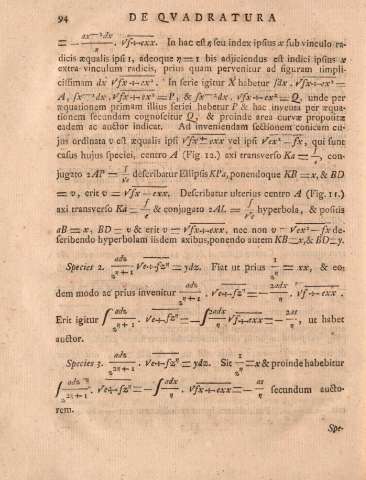 94 DE QVADRATURA
= − ax⁻²dx/η . √fx+exx. In hac est η seu index ipsius x sub vinculo ra-
dicis æqualis ipsi 1, adeoque η=1 bis adjiciendus est indici ipsius x
extra vinculum radicis, prius quam perveniatur ad figuram simpli-
cissimam dx √fx+ex². In serie igitur X habetur ∫dx. √fx+ex² =
A, ∫x⁻¹dx.√fx+ex² = P, & ∫x⁻²dx.√fx+ex² = Q, unde per
æquationem primam illius seriei habetur P & hac inventa per æqua-
tionem secundam cognoscitur Q, & proinde area curvæ propositæ
eadem ac auctor indicat. Ad inveniendam sectionem conicam cu-
jus ordinata v est æqualis ipsi √fx+exx vel ipsi √ex²−fx, qui sunt
casus hujus speciei, centro A (Fig 12.) axi transverso Ka = f/e, con-
jugato 2AP = f/√e describatur Ellipsis KPa, ponendoque KB = x, & BD
= v, erit v = √fx−exx. Describatur ulterius centro A (Fig. 11.)
axi transverso Ka = f/e & conjugato 2AL = f/√e hyperbola, & positis
aB = x, BD = v & erit v = √fx+exx, nec non v = √ex²−fx de-
scribendo hyperbolam iisdem axibus, ponendo autem KB=x, & BD=v.
Species 2. adz/z^(η+1) . √e+fz^η = ydz. Fiat ut prius 1/z^η = xx, & eo-
dem modo ac prius invenitur adz/z^(η+1) . √e+fz^η = − 2adx/η . √f+exx.
Erit igitur ∫adz/z^(η+1) . √e+fz^η = −∫2adx/η √f+exx = − 2as/η, ut habet
auctor.
Species 3. adz/z^(2η+1) . √e+fz^η = ydz. Sit 1/z^η = x & proinde habebitur
∫adz/z^(2η+1) . √e+fz^η = −∫adx/η . √fx+exx = − as/η secundum aucto-
rem.
Spe-